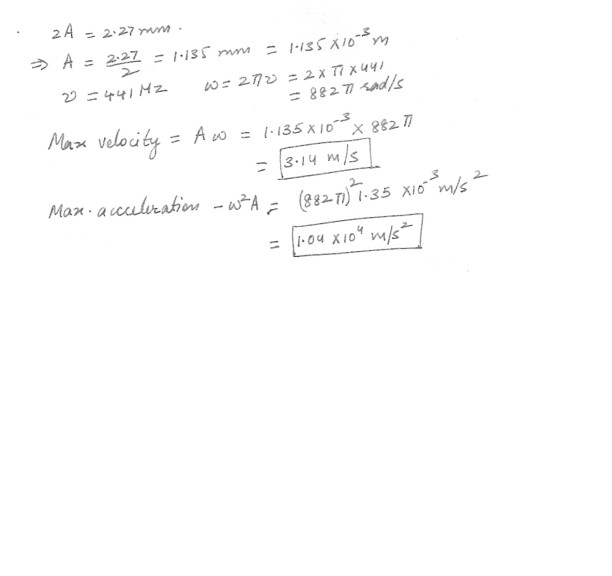 2A = 2.27 mm.
⇒ A = 2.27/2 = 1.135 mm = 1.135 × 10⁻³ m
ν = 441 Hz   ω = 2πν = 2 × π × 441
= 882 π rad/s
Max velocity = A ω = 1.135 × 10⁻³ × 882 π
= 3.14 m/s
Max. acceleration - ω²A = (882 π)² 1.35 × 10⁻³ m/s²
= 1.04 × 10⁴ m/s²